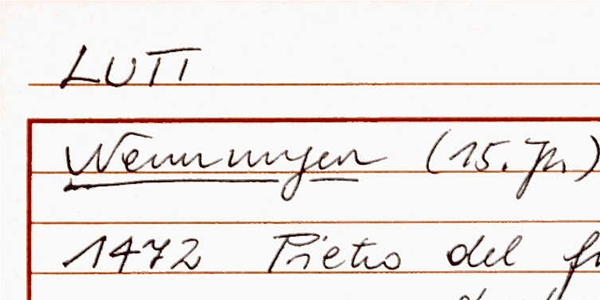 LUTI
Nennungen (15. Jh.)
1472 Pietro del